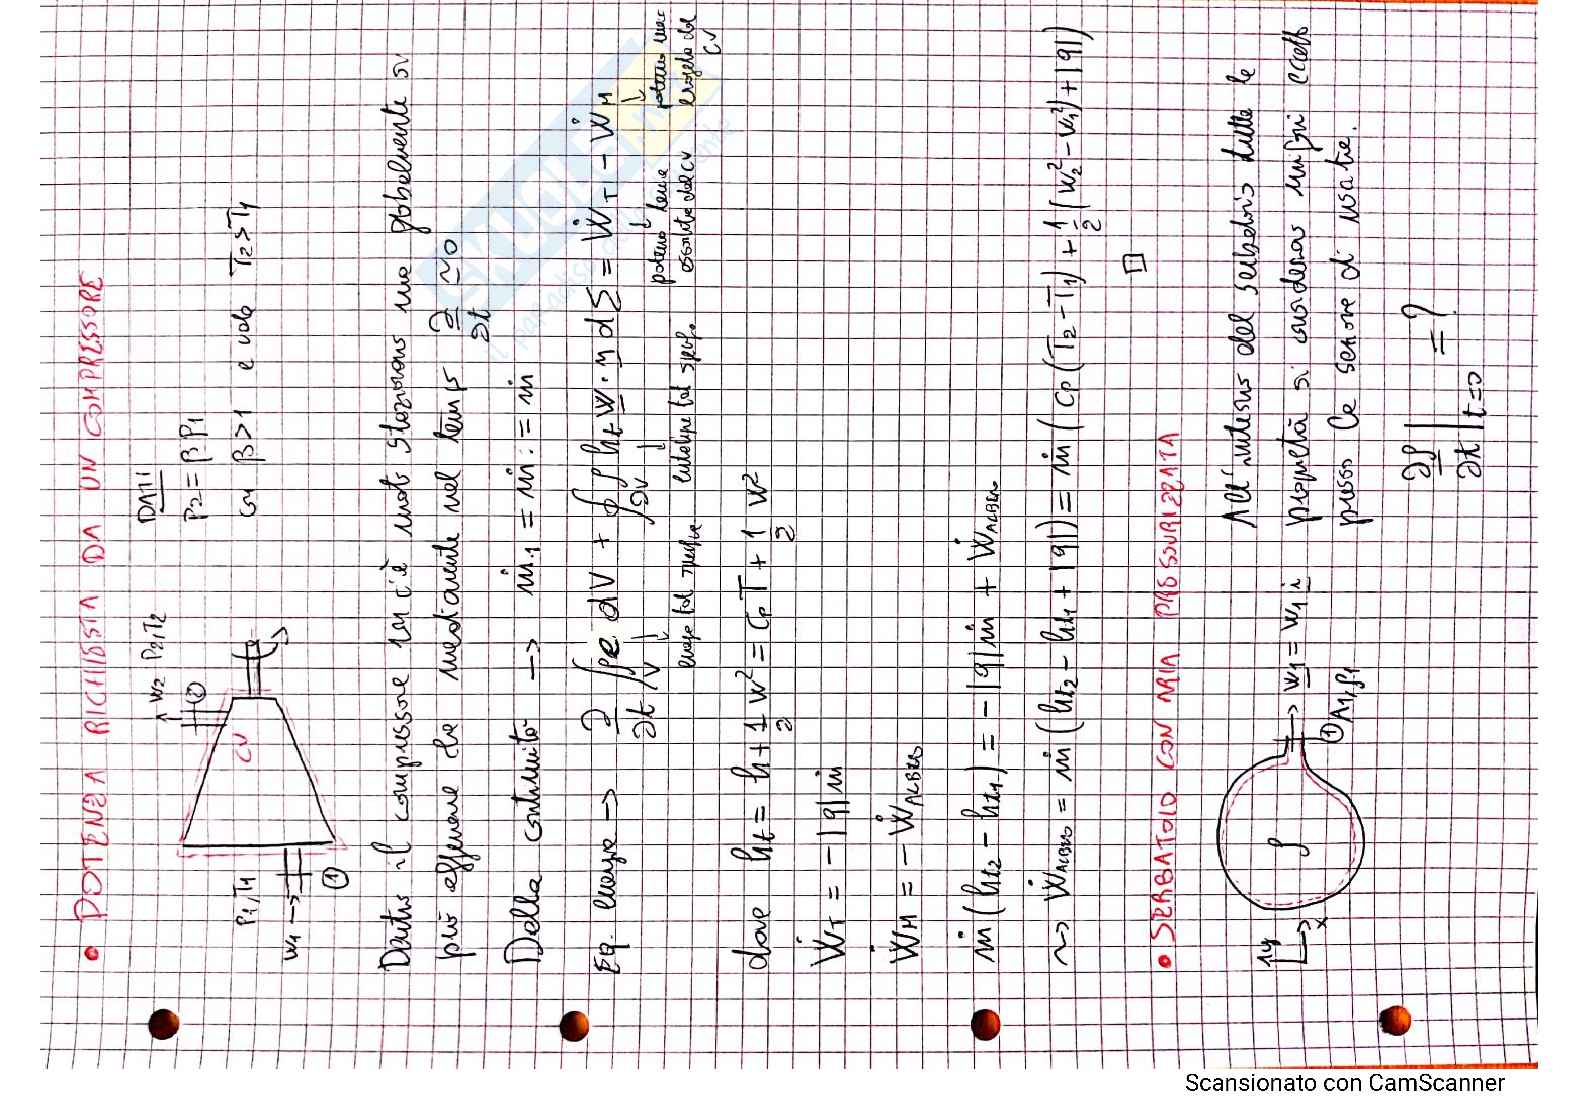 • POTENZA RICHIESTA DA UN COMPRESSORE
W2 P2,T2
②
CV
P1,T1
W1 →
①
DATI
P2 = β P1
con β>1 e vale T2>T1
Dentro il compressore non c'è moto stazionario ma globalmente si
può affermare che mediamente nel tempo ∂/∂t ≃ 0
Dalla continuità → ṁ1 = ṁ2 = ṁ
Eq. energia → ∂/∂t ∫V ρe dV + ∮∂V ρ ht w · n dΣ = ẆT − ẆM
energia tot specifica entalpia tot specif. potenza termica entrante dal CV potenza mecc erogata dal CV
dove ht = h + 1/2 w² = cp T + 1/2 w²
ẆT = −|q| ṁ
ẆM = − ẆALBERO
ṁ (ht2 − ht1) = −|q| ṁ + ẆALBERO
~> ẆALBERO = ṁ (ht2 − ht1 + |q|) = ṁ ( cp (T2 − T1) + 1/2 (w2² − w1²) + |q|)
□
• SERBATOIO CON ARIA PRESSURIZZATA
y
x
ρ
→ w1 = w1 i
① A1, ρ1
All'interno del serbatoio tutte le
proprietà si considerano unifori eccetto
presso la sezione di uscita.
∂ρ/∂t |t=0 = ?
Scansionato con CamScanner